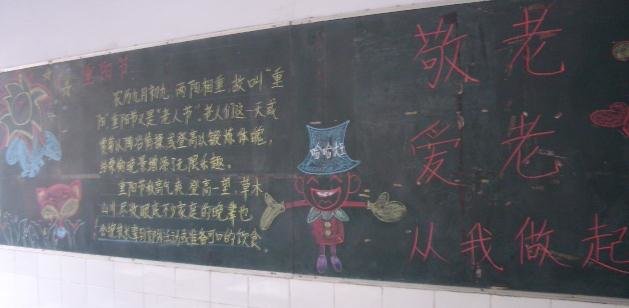 重阳节
农历九月初九,两阳相重,故叫“重
阳”重阳节又是“老人节”,老人们这一天或
赏菊以陶冶情操或登高以锻炼体魄,
给桑榆晚景增添了无限乐趣。
重阳节秋高气爽,登高一望,草木
山川尽收眼底不少家庭的晚辈也
会搀扶老
可口的饮食
哈哈社
敬老
爱老
从我做起